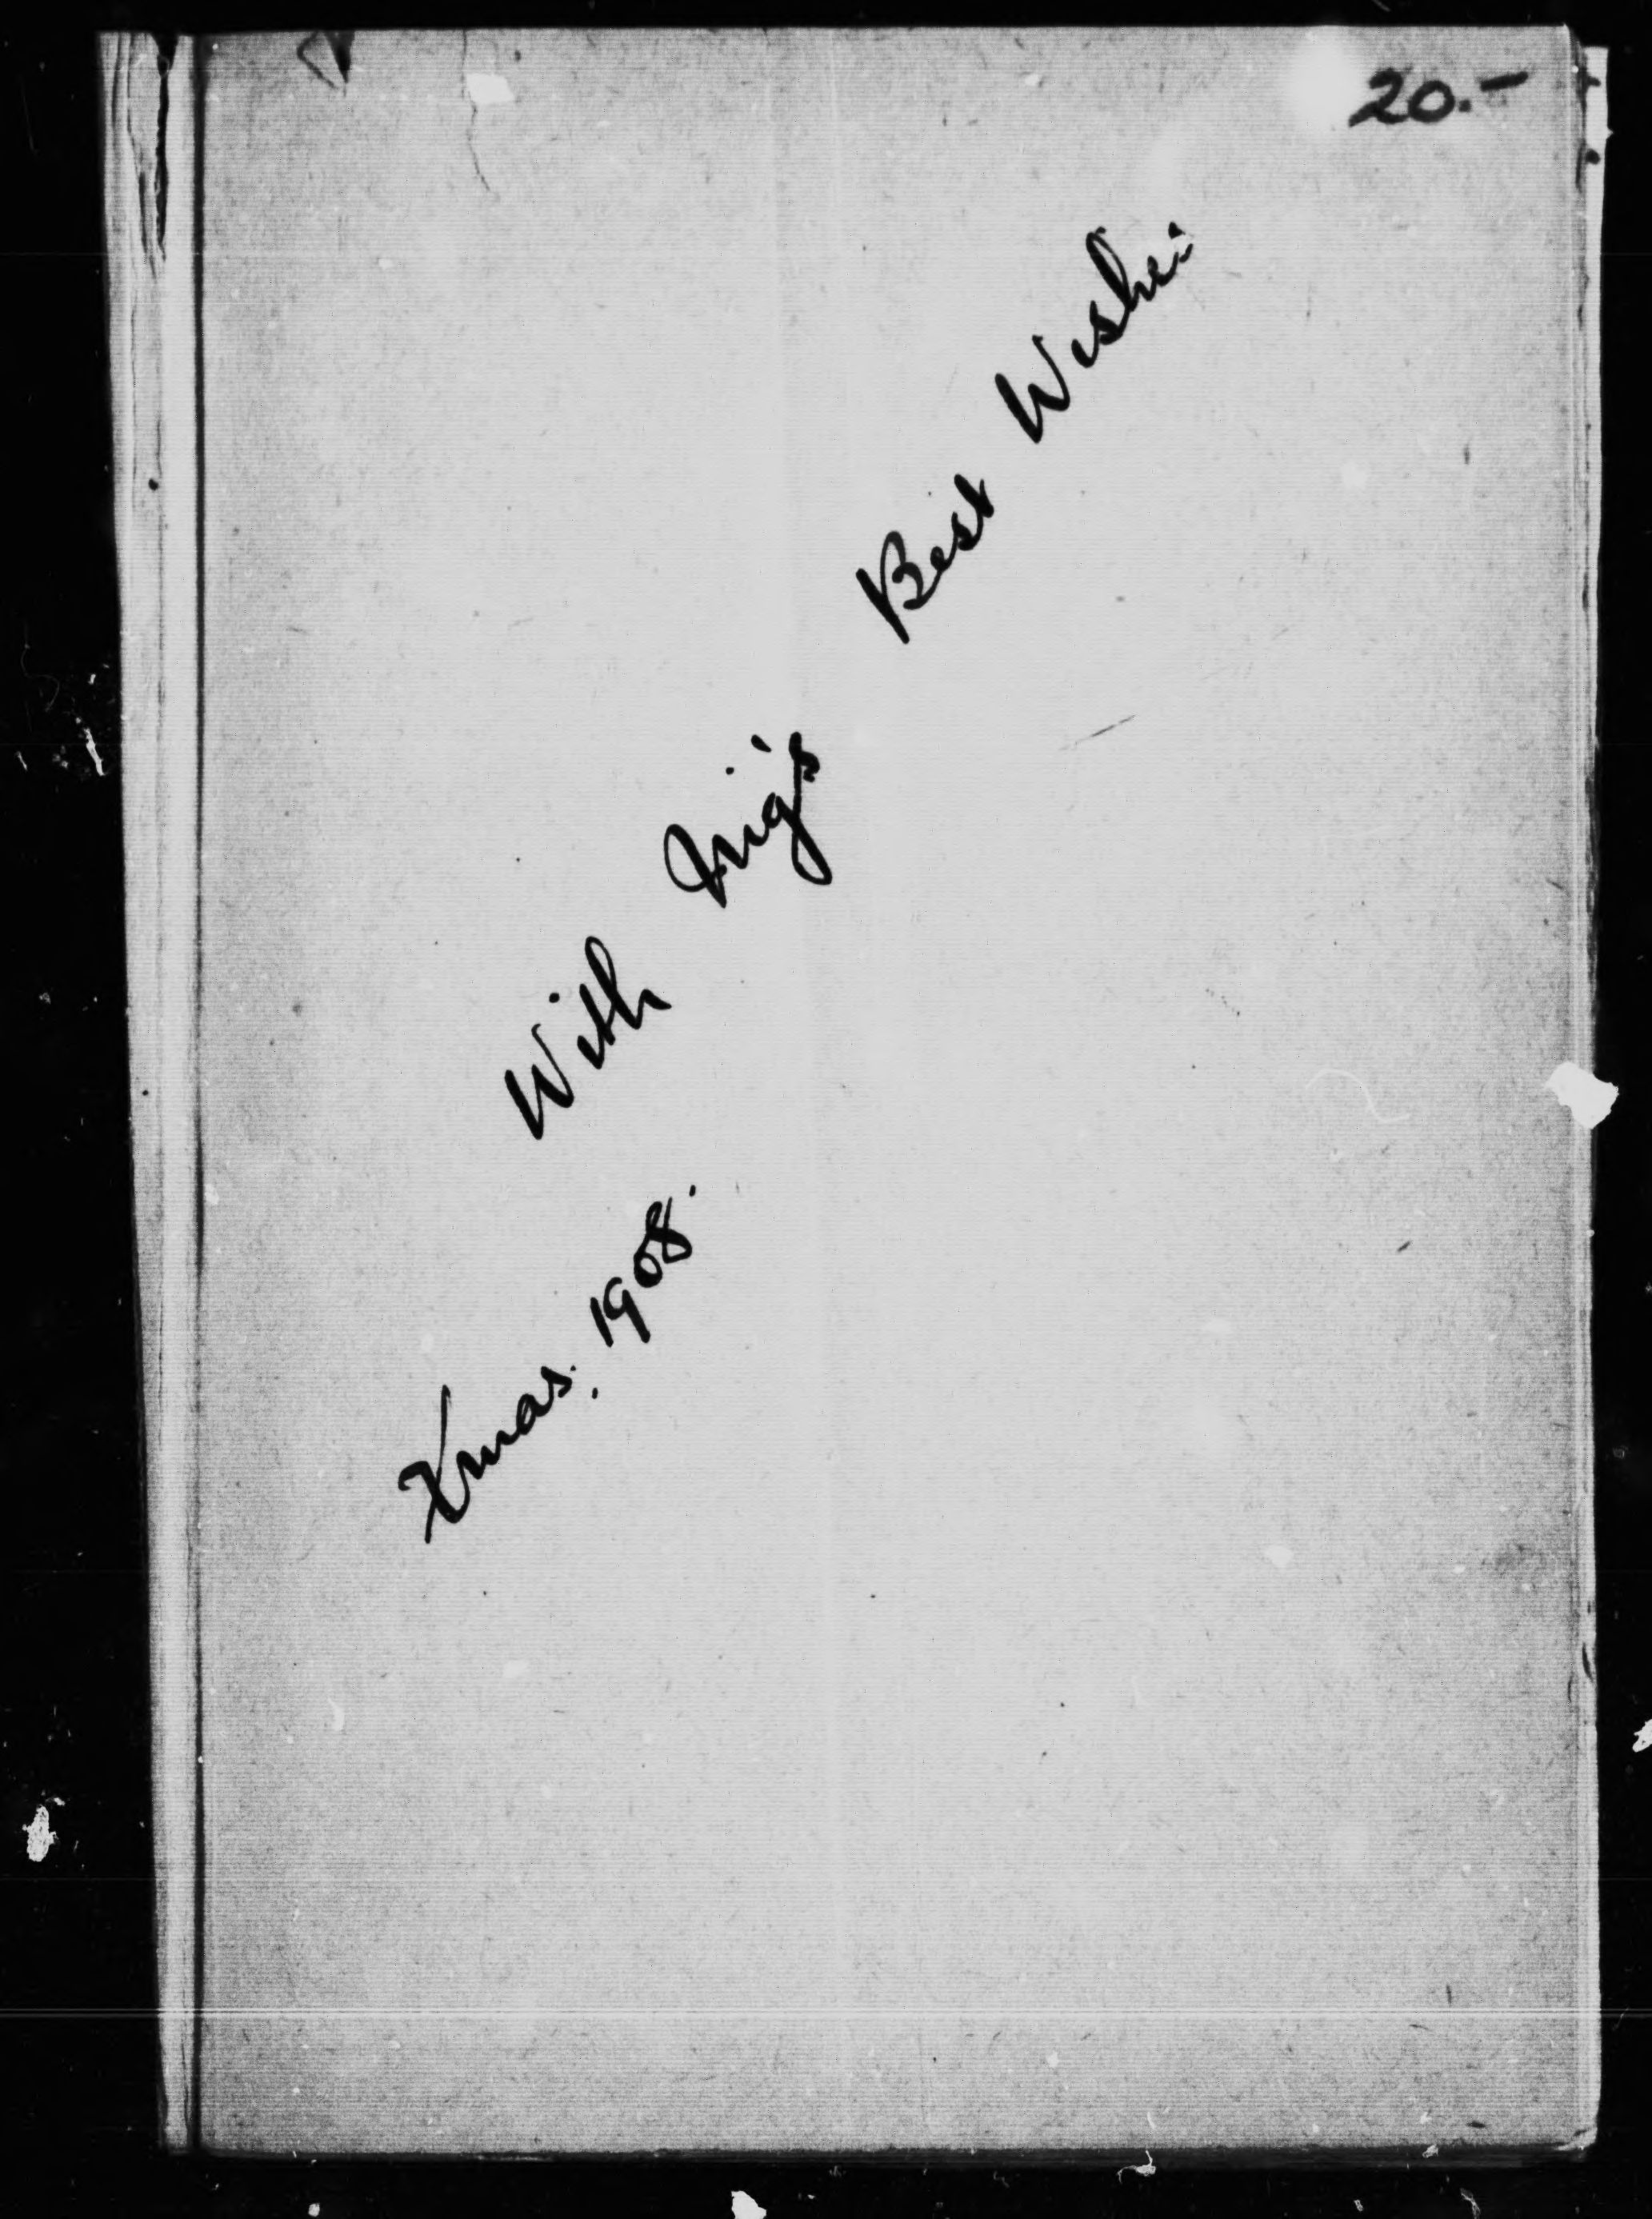 20.-
With Best Wishes
Xmas. 1908.